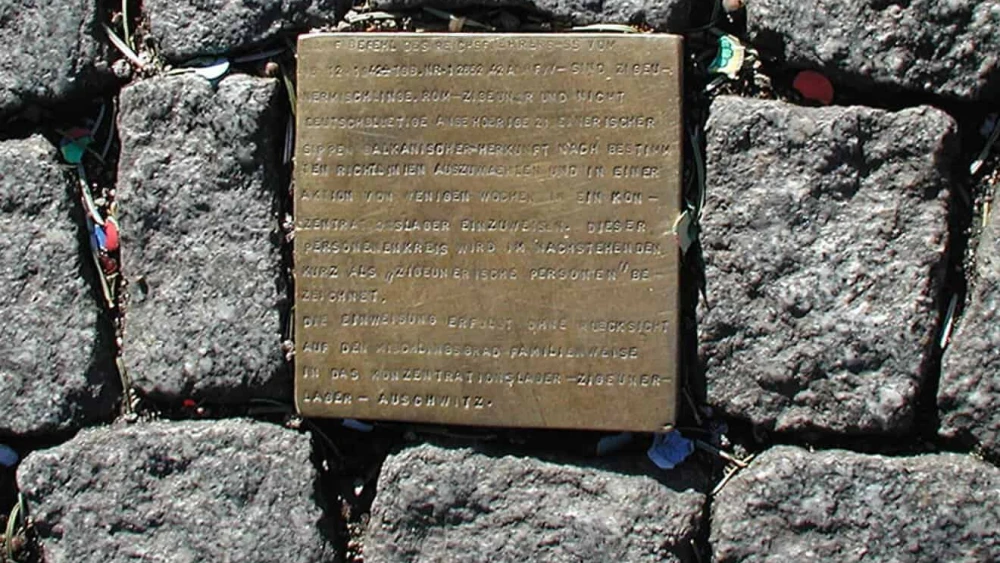 BEFEHL DES REICHSFÜHRERS-SS VOM
12.1942-TGB.NR-I 2652 42 A SIND ZIGEU-
NERMISCHLINGE, ROM-ZIGEUNER UND NICHT
DEUTSCHBLUETIGE ANGEHOERIGE ZIGEUNERISCHER
SIPPEN BALKANISCHER-HERKUNFT NACH BESTIMM
TEN RICHTLINIEN AUSZUWAEHLEN UND IN EINER
AKTION VON WENIGEN WOCHEN IN EIN KON-
ZENTRATIONSLAGER EINZUWEISEN. DIESER
PERSONENENKREIS WIRD IM NACHSTEHENDEN
KURZ ALS „ZIGEUNERISCHE PERSONEN" BE-
ZEICHNET.
DIE EINWEISUNG ERFOLGT OHNE RUECKSICHT
AUF DEN MISCHLINGSGRAD FAMILIENWEISE
IN DAS KONZENTRATIONSLAGER-ZIGEUNER-
LAGER-AUSCHWITZ.